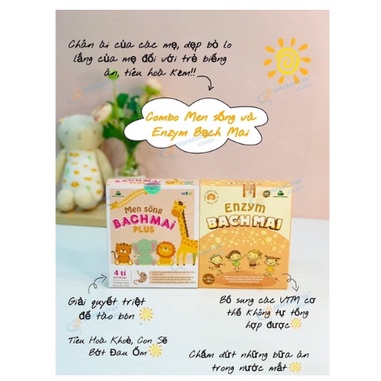 Chân ái của các mẹ, dẹp bỏ lo
lắng của mẹ đối với trẻ biếng
ăn, tiêu hoá kém!!
Combo Men sống và
Enzym Bạch Mai
Men sống
BACHMAI
PLUS
4 tỉ
Enzym
BACHMAI
Giải quyết triệt
để táo bón
Tiêu Hoá Khoẻ, Con Sẽ
Bớt Đau Ốm
Bổ sung các VTM cơ
thể không tự tổng
hợp được
Chấm dứt những bữa ăn
trong nước mắt